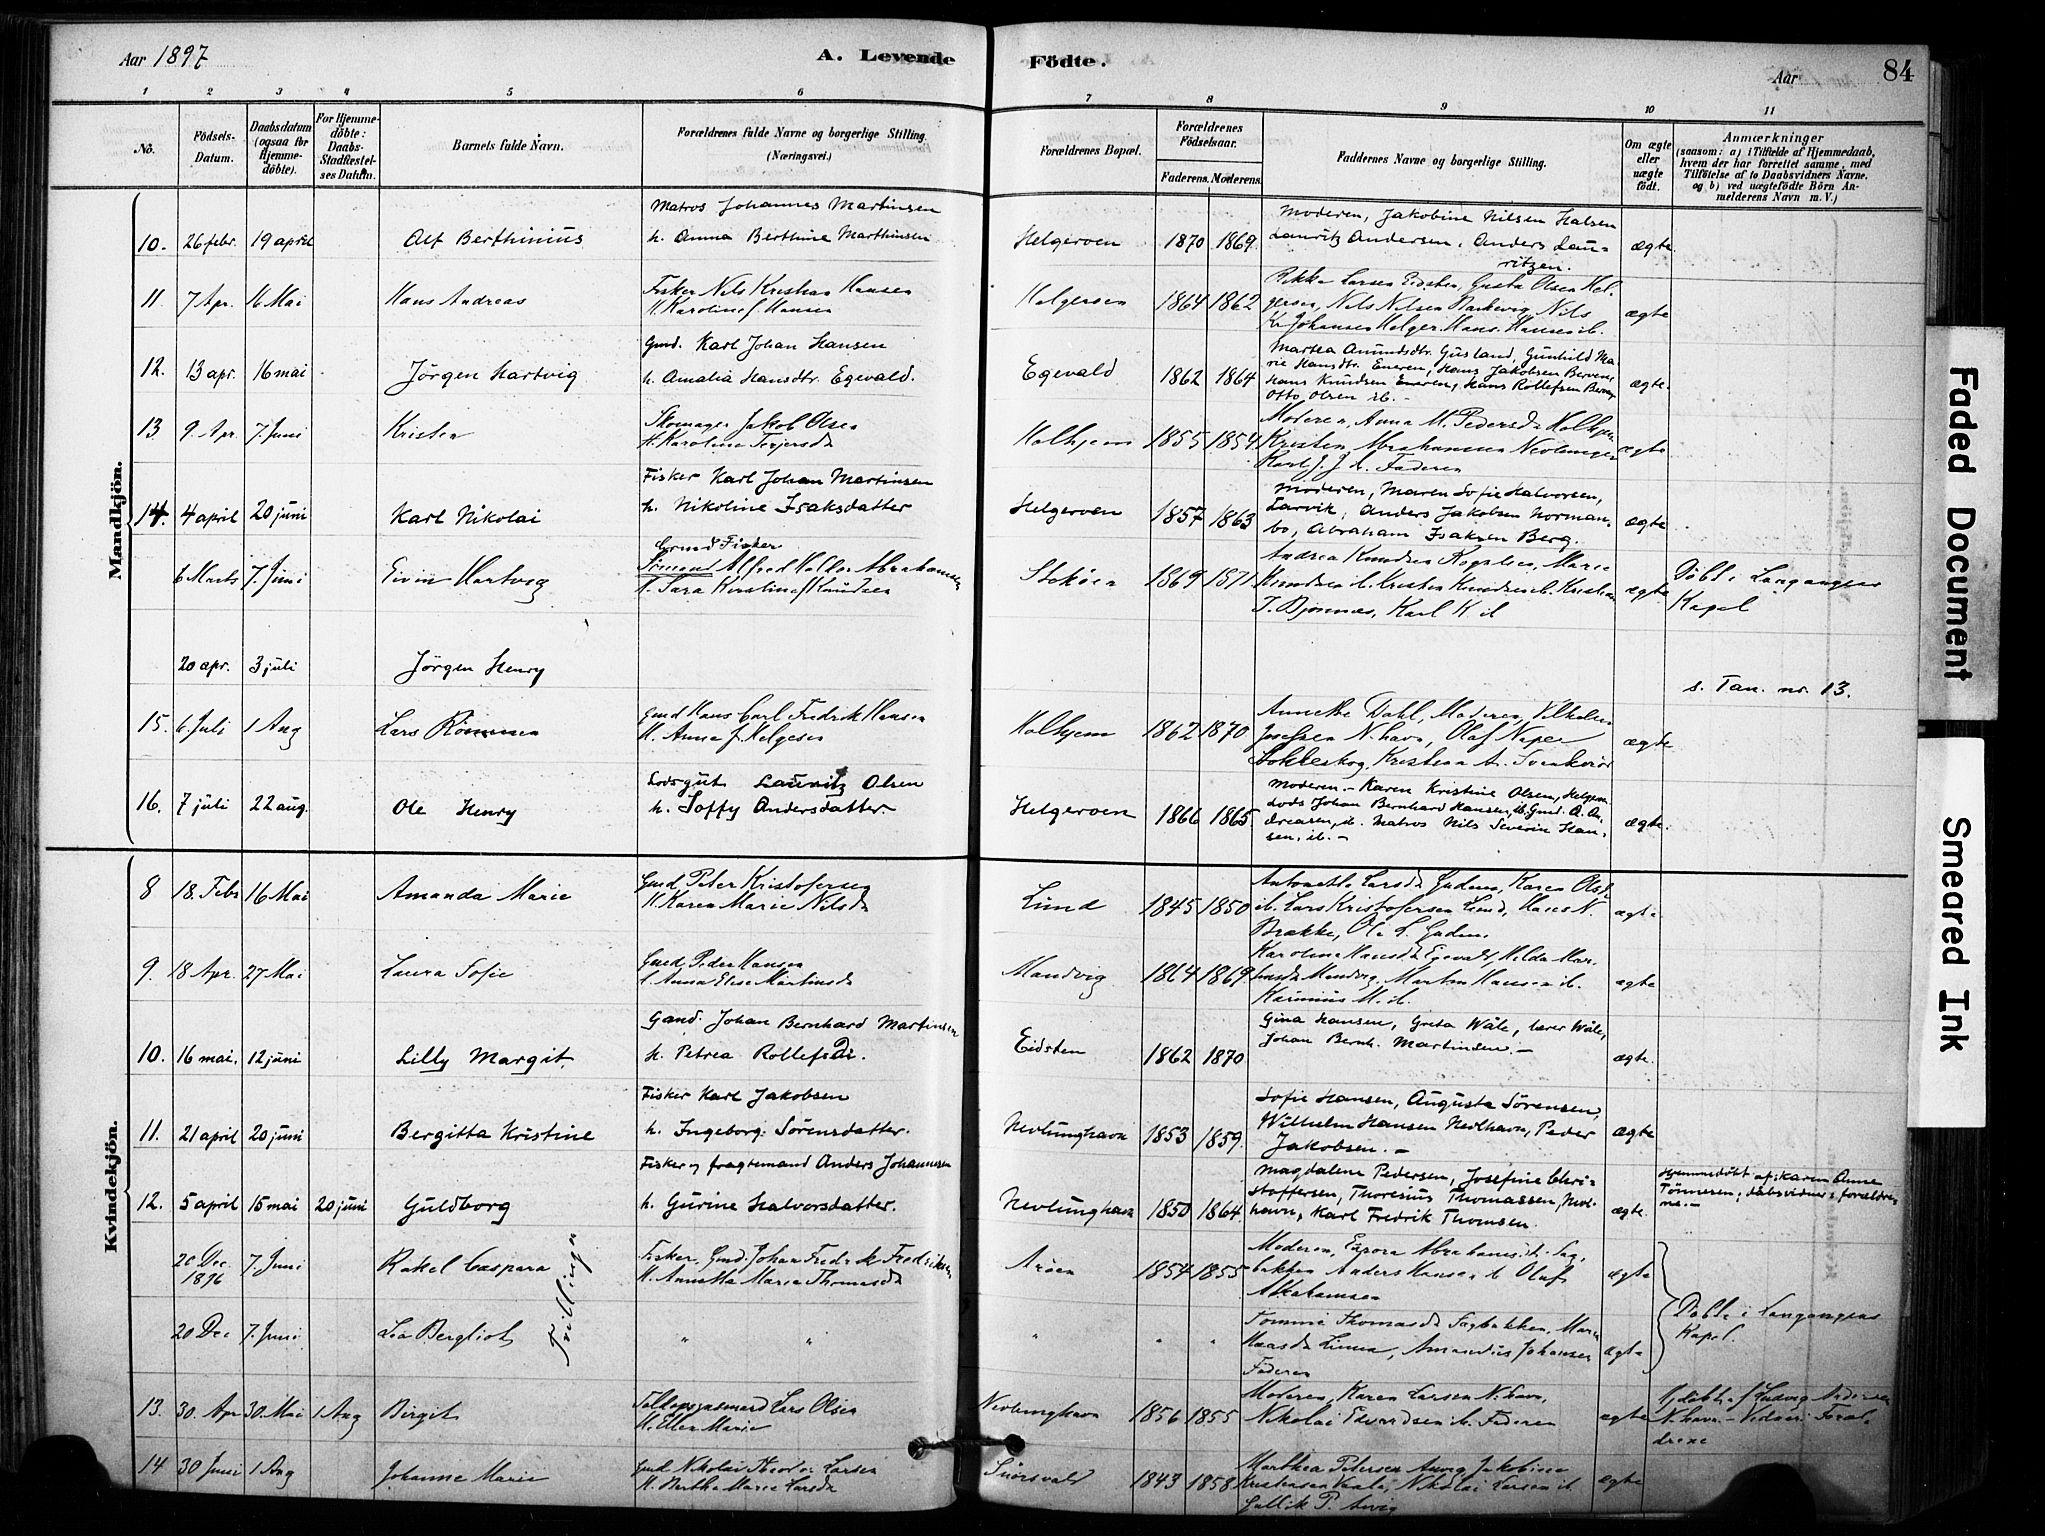 Aar 1897
A. Levende Födte.
Aar
84
1 2 3 4 5 6 7 8 9 10 11
No.
Födsels-Datum.
Daabsdatum (ogsaa for Hjemme-döbte).
For Hjemme-döbte: Daabs-Stadfæstel-ses Datum.
Barnets fulde Navn.
Forældrenes fulde Navne og borgerlige Stilling. (Næringsvei.)
Forældrenes Bopæl.
Forældrenes Födselsaar.
Faderens. Moderens.
Faddernes Navne og borgerlige Stilling.
Om ægte eller uægte födt.
Anmærkninger
(saasom: a) i Tilfælde af Hjemmedaab, hvem der har forrettet samme, med Tilföielse af to Daabsvidners Navne. og b) ved uægtefödte Börn An-melderens Navn m. V.)
Mandkjön.
Matros Johannes Martinsen
10. 26 febr. 19 april Alf Berthinius h. Anna Berthine Marthinsen Helgeroen 1870 1869. Moderen, Jakobine Nilsen Halsen
Lauritz Andersen, Anders Lau-
ritzen. ægte.
11. 7 Apr. 16 Mai Hans Andreas Fisker Nils Kristian Hansen
H. Karoline f. Hansen Helgeroen 1864 1862 Larsen Eidsten, Gusta Olsen Hel-
geroen, Nils Nilsen Barkevig, Nils
Kr Johansen Helger. Hans Hansen ib. ægte
Gmd. Karl Johan Hansen
12. 13 apr. 16 mai Jörgen Hartvig h. Amalia Hansdtr. Egevald. Egevald 1862 1864 Martea Amundsdtr. Gusland, Gunhild Ma-
rie Hansdtr. Eneren, Hans Jakobsen Berven,
Hans Knudsen Eneren, Hans Rollefsen Berven
Otto Olsen ib. - ægte.
13 9. Apr. 7. Juni Kristen Skomager Jakob Olsen
H. Karoline Terjersda Holhjem 1855 1854 Moderen, Anna M. Pedersda Holhjem
Kristen Abrahamsen Nevlungen
Faderen ægte
Fisker Karl Johan Martinsen
14. 4 april 20 juni Karl Nikolai h. Nikoline Isaksdatter Helgeroen 1857 1863 Moderen, Maren Sofie Halvorsen,
Larvik, Anders Jakobsen Norman-
bo, Abraham Isaksen Berg. ægte
Gmd Fisker
6 Marts 7. Juni Eivin Hartvig Alfred Abrahamsen
H. Sara Kirstine f Knudsen Stokøen 1869 1871 Andrea Knudsen Marie
Knudsen ib. Kristen Knudsen ib. Kristian
T. Bjønnes, Karl K. ib ægte Döbt i Langangens
Kapel
20 apr. 3 juli Jörgen Henry
s. Tan. nr. 13.
15. 6. Juli 1 Aug Lars Gmd Hans Carl Fredrik Hansen
H. Anna f. Helgesen Holhjem 1862 1870 Annette Dahl, Moderen, Vilhelm
Josefsen N.havn, Olaf
Kristian A. ægte
16. 7 juli 22 aug. Ole Henry Lodsgut Lauritz Olsen
h. Soffy Andersdatter. Helgeroen 1866 1865. Moderen. - Karen Kristine Olsen, Helgeroen
Lods Johan Bernhard Hansen, ib. Gmd. A. An-
dreasen, ib. Matros Nils Severin Han-
sen, ib. - ægte.
Kvindekjön.
8 18. Febr 16 Mai Amanda Marie Gmd Peter Kristofersen
H. Karen Marie Nilsda Lund 1845 1850 Antonette Larsda Guden, Karen Olsd
ib. Lars Kristofersen Lund, Hans N.
Brække, Ole L. Guden. ægte
9. 18 Apr. 27 Mai Laura Sofie Gmd. Peder Hansen
H. Anna Elise Martinsda Manvig 1864 1869 Karoline Hansda Egevald, Hilda Mar-
tinsda Manvig, Martin Hansen ib.
M. ib. ægte
Gmd. Johan Bernhard Martinsen
10. 16 mai. 12 juni Lilly Margit. h. Petrea Rollefsdr. Eidsten 1862 1870 Gina Hansen, Greta Wåle, Lærer Wåle,
Johan Bernh. Martinsen. - ægte.
Fisker Karl Jakobsen
11. 21 april 20 juni Bergitta Kristine h. Ingeborg Sörensdatter. Nevlunghavn 1853 1859. Sofie Hansen, Augusta Sörensen,
Wilhelm Hansen Nevlhavn, Peder
Jakobsen. - ægte
Fisker og fragtemand Anders Johannesen
12. 5 april 15 mai 20 juni Guldborg h. Gurine Halvorsdatter. Nevlunghavn 1850 1864. Magdalene Pedersen, Josefine Chri-
stoffersen, Thoresius Thomassen, Nevl-
havn, Karl Fredrik Thomsen. ægte. Hjemmedöbt af: Karen Anne
Tönnesen; dåbsvidner: forældre-
ne. -
Tvillinger
20 Dec 1896 7. Juni Rakel Caspara Fisker, Gmd. Johan Fredrik Fredriksen
H. Annetta Maria Thomasda Arøen 1854 1855 Moderen, Abrahamsdt. Sag-
bakken Anders Hansen ib Oluf
Abrahamsen ægte
20 Dec 7. Juni Lea Bergliot " " " " " Tomine Thomasda Sagbakken, Maren
Amandus Johansen
Faderen ægte
Döbte i Langangens
Kapel.
13. 30. Apr 30. Mai 1 Aug Birgit Lars Olsen
H. Ellen Marie Nevlunghavn 1856 1855 Moderen, Karen Larsen N.havn,
Nikolai Edvardsen ib. Faderen ægte Hjdöbt af Ludvig Andersen
N.havn - Vidner: Foræl-
drene
14 30 Juni 1 Aug Johanne Marie Gmd Nikolai Teodor Larsen
H. Berthe Marie Larsda 1843 1858 Marthea Petersen Jakobine
Kristensen Nikolai Larsen ib
Gullik P. ægte
Faded Document
Smeared Ink